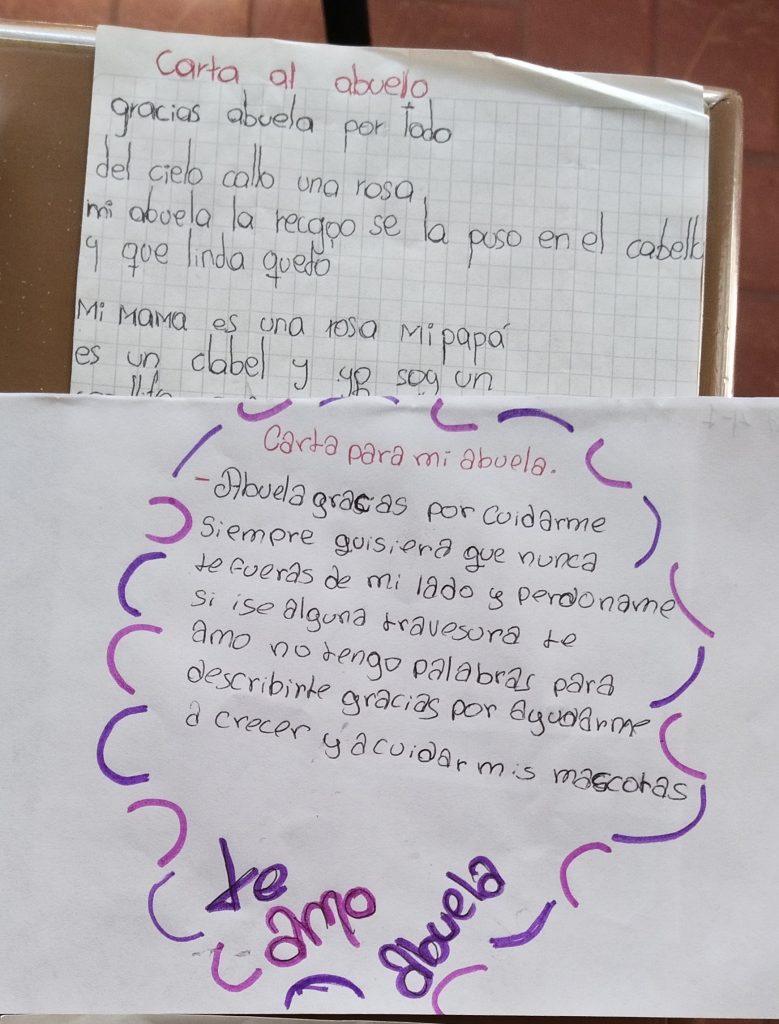 Carta al abuelo
gracias abuela por Todo
del cielo callo una rosa
mi abuela la recgoo se la puso en el cabello
y que linda quedo
Mi MAMA es una rosa Mi papá
es un clabel y yo soy un
Carta para mi abuela.
- Abuela gracas por cuidarme
Siempre quisiera que nunca
te fueras de mi lado y perdoname
si ise alguna travesura te
amo no tengo palabras para
describirte gracias por ayudarme
a crecer y a cuidar mis mascotas
te
amo
abuela